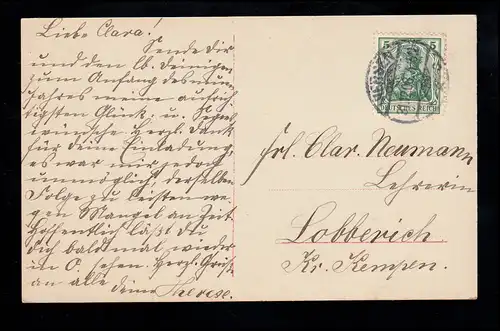 Liebe Clara!
Sende dir
und den lb. Deinigen
zum Anfang des neuen
Jahres meine aufrich-
tigsten Glück u. Segens
wünsche. Herzl. Dank
für deine Einladung,
es war mir jedoch
unmöglich, derselben
Folge zu leisten we-
gen Mangel an Zeit
Hoffentlich läßt du
dich bald mal wieder
in O. sehen. Herzl. Grüße
an alle deine Therese.
5 5
DEUTSCHES REICH
Frl. Clar. Neumann
Lehrerin
Lobberich
Kr. Kempen.